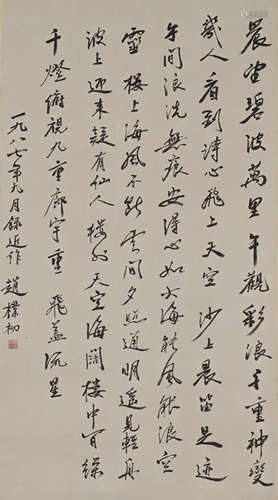 晨望碧波萬里午觀彩浪千重神變
幾人看到詩心飛上天空沙上晨留足迹
午間浪洗無痕安得心如大海能風能浪空
靈樓上海風不斷雲間夕照通明遥見輕舟
波上近來疑有仙人樓外天空海闊樓中
千燈俯視九重廊宇重飛蓋流星
一九八七年九月録近作趙樸初